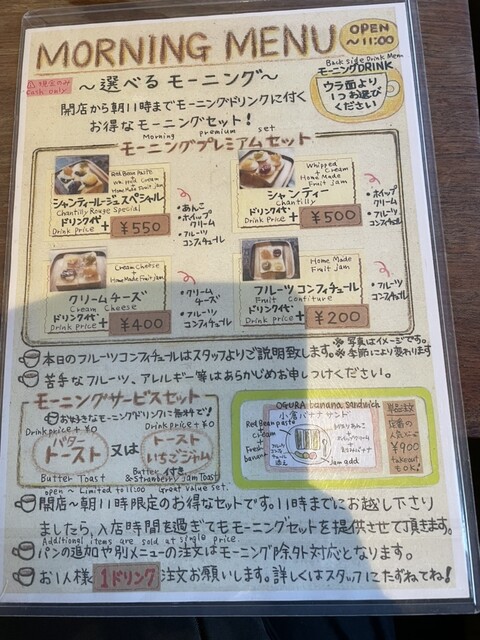 MORNING MENU
OPEN
~11:00
現金のみ
Cash only
~選べるモーニング~
Back side Drink Menu
モーニングDRINK
ウラ面より
1つお選び
ください
開店から朝11時までモーニングドリンクに付く
お得なモーニングセット!
Morning premium set
モーニングプレミアムセット
Red Bean Paste
Whipped Cream
Home Made Fruit Jam
シャンティールージュスペシャル
Chantilly Rouge Special
ドリンク代
Drink price + ¥550
・あんこ
・ホイップクリーム
・フルーツコンフィチュール
Whipped
Cream
Home Made
Fruit Jam
シャンティー
Chantilly
ドリンク代
Drink price + ¥500
・ホイップクリーム
・フルーツコンフィチュール
Cream Cheese
+
Home Made Fruit Jam
クリームチーズ
Cream Cheese
ドリンク代
Drink price + ¥400
・クリームチーズ
・フルーツコンフィチュール
Home Made
Fruit Jam
フルーツコンフィチュール
Fruit Confiture
ドリンク代
Drink price + ¥200
・フルーツコンフィチュール
※写真はイメージです。
本日のフルーツコンフィチュールはスタッフよりご説明致します。※季節により変わります
苦手なフルーツ、アレルギー等はあらかじめお申しつけください。
モーニングサービスセット
お好きなモーニングドリンクに無料で!
Drink price + ¥0
バタートースト
Butter Toast
又は
Drink price + ¥0
トースト
いちごジャム
Butter & Strawberry Jam Toast
OGURA banana sandwich
小倉バナナサンド
Red Bean paste
+
cream
+
Fresh
banana
Jam add
定番の
人気に
¥900
takeout
もOK!
open ~ Limited to 11:00 Great value set.
開店~朝11時限定のお得なセットです。11時までにお越し下さり
ましたら、入店時間を過ぎてもモーニングセットを提供させて頂きます。
Additional items are sold at single price
パンの追加や別メニューの注文はモーニング除外対応となります。
お1人様1ドリンク注文お願いします。詳しくはスタッフにたずねてね!